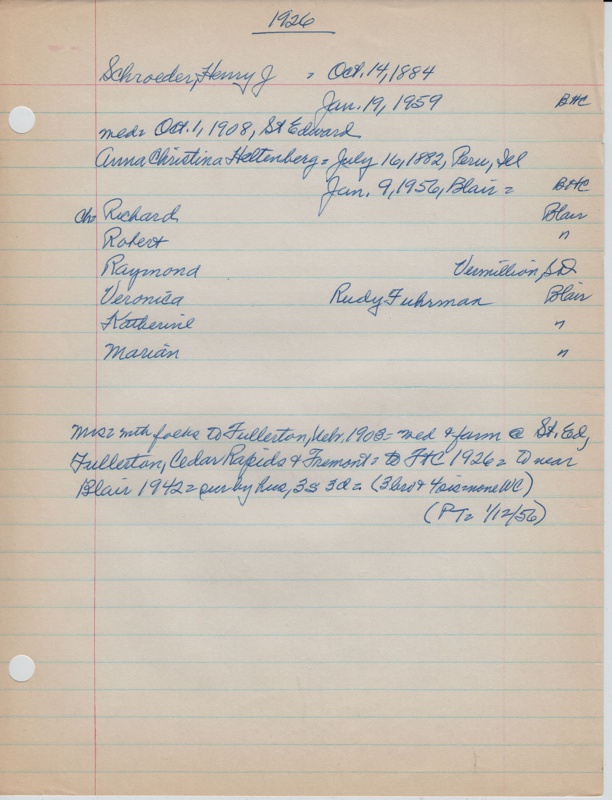 1926
Schroeder, Henry J = Oct. 14, 1884
Jan. 19, 1959 BHC
med = Oct. 1, 1908, St Edward
Anna Christina Heltenberg = July 16, 1882, Peru, Ill
Jan. 9, 1956, Blair = BHC
ch = Richard Blair
Robert "
Raymond Vermillion, SD
Veronica Rudy Fuhrman Blair
Katherine "
Marian "
Mrs = with folks to Fullerton, Nebr. 1903 = med & farm @ St. Ed,
Fullerton, Cedar Rapids & Fremont = to FHC 1926 = to near
Blair 1942 = sur by hus, 3s 3d = (3 bro & 4 sis = none WC)
(PT = 1/12/56)